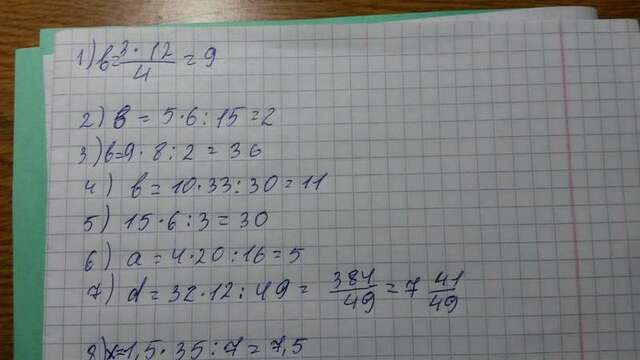 1) b = 3 · 12 / 4 = 9
2) b = 5 · 6 : 15 = 2
3) b = 9 · 8 : 2 = 36
4) b = 10 · 33 : 30 = 11
5) 15 · 6 : 3 = 30
6) a = 4 · 20 : 16 = 5
7) d = 32 · 12 : 49 = 384/49 = 7 41/49
8) x = 1,5 · 35 : 7 = 7,5